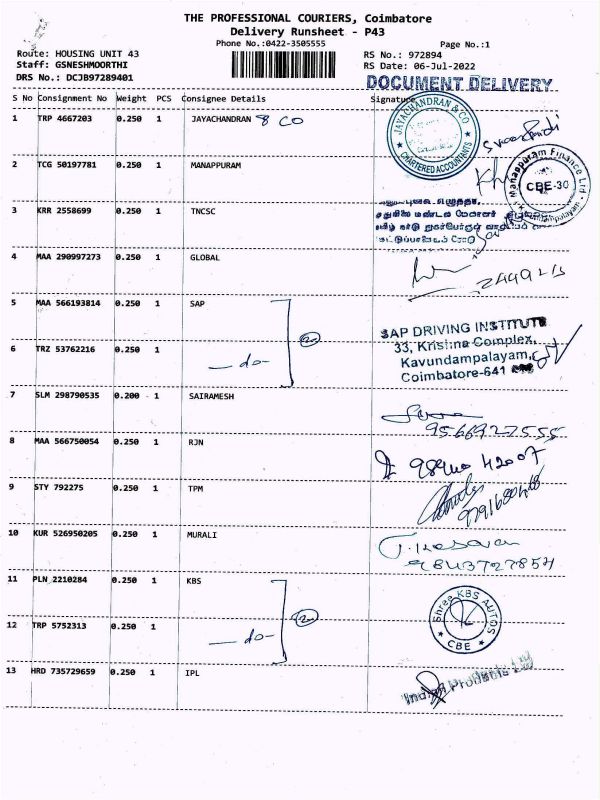 THE PROFESSIONAL COURIERS, Coimbatore
Delivery Runsheet - P43
Phone No.:0422-3505555
Page No.:1
Route: HOUSING UNIT 43
RS No.: 972894
Staff: GSNESHMOORTHI
RS Date: 06-Jul-2022
DRS No.: DCJB97289401
DOCUMENT DELIVERY
S No Consignment No Weight PCS Consignee Details Signature
1 TRP 4667203 0.250 1 JAYACHANDRAN & CO
JAYACHANDRAN & CO
CHARTERED ACCOUNTANTS
2 TCG 50197781 0.250 1 MANAPPURAM
Manappuram Finance Ltd
CBE-30
3 KRR 2558699 0.250 1 TNCSC
4 MAA 290997273 0.250 1 GLOBAL
5 MAA 566193814 0.250 1 SAP
SAP DRIVING INSTITUTE
33, Krishna Complex,
Kavundampalayam,
Coimbatore-641
6 TRZ 53762216 0.250 1 -do-
7 SLM 298790535 0.200 1 SAIRAMESH
9566927555
8 MAA 566750054 0.250 1 RJN
9 STY 792275 0.250 1 TPM
10 KUR 526950205 0.250 1 MURALI
9843727857
11 PLN 2210284 0.250 1 KBS
Shree KBS AUTOS
CBE
12 TRP 5752313 0.250 1 -do-
13 HRD 735729659 0.250 1 IPL